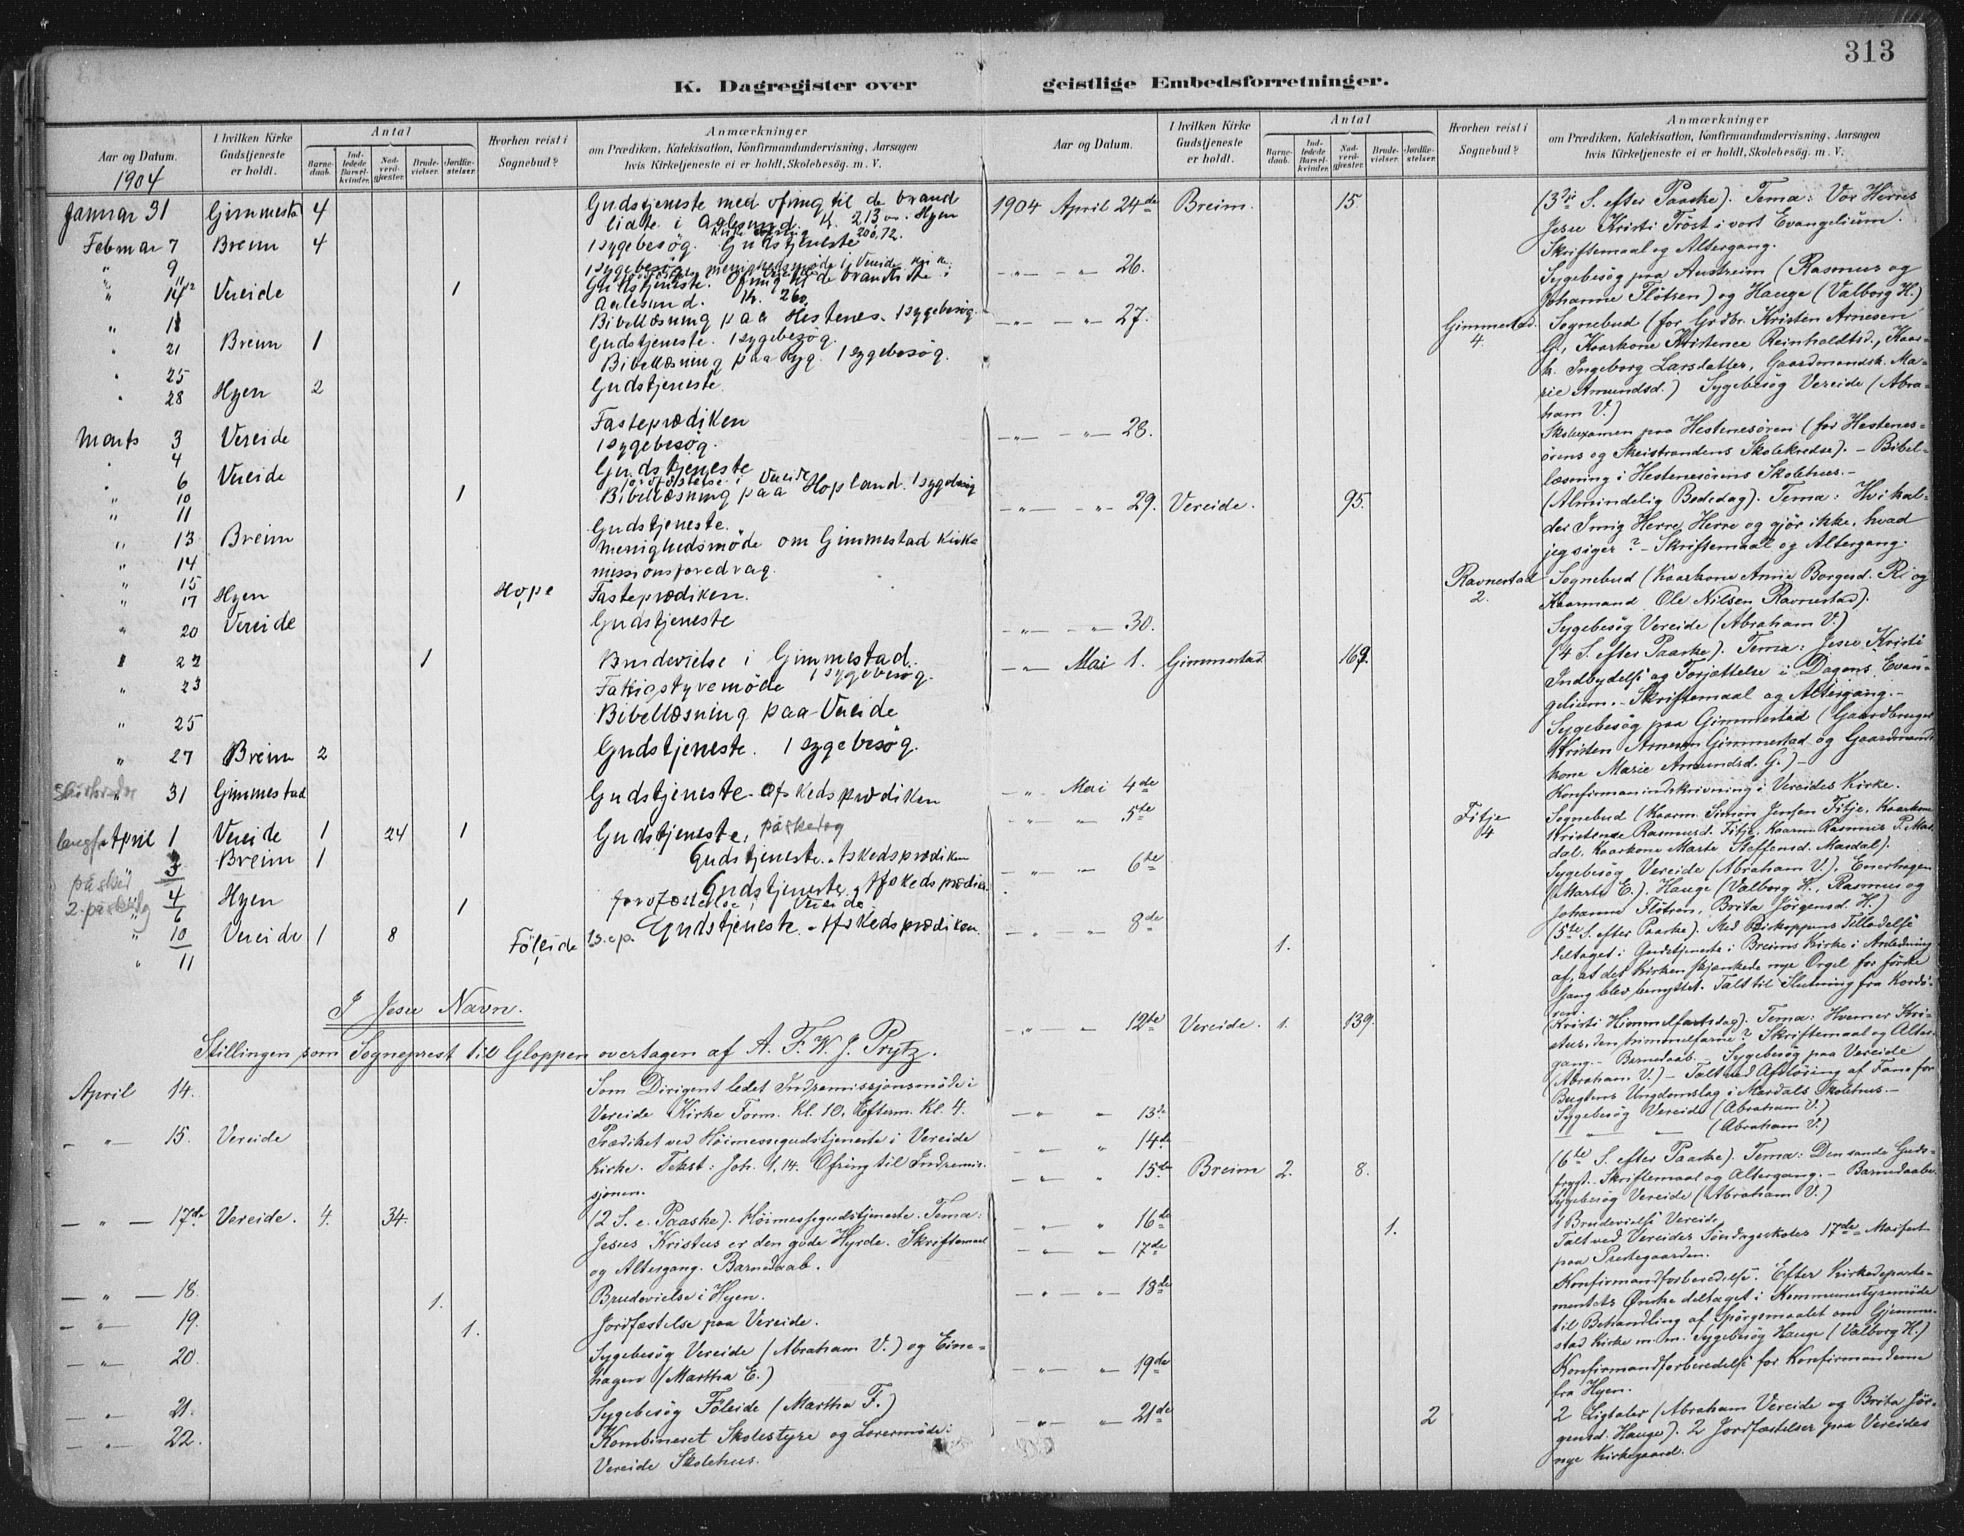 313
K. Dagregister over geistlige Embedsforretninger.
Aar og Datum.
1904
I hvilken Kirke
Gudstjeneste
er holdt.
Antal
Barne-
daab.
Ind-
ledede
Barsel-
kvinder.
Nad-
verd-
gjæster.
Brude-
vielser.
Jordfæ-
stelser.
Hvorhen reist i
Sognebud?
Anmærkninger
om Prædiken, Katekisation, Konfirmandundervisning, Aarsagen
hvis Kirketjeneste ei er holdt, Skolebesøg. m. V.
Januar 31 Gimmestad 4 Gudstjeneste med ofring til de brand
lidte i Aalesund. Kr. 213 Hyen
200,72.
Februar 7 Breim 4 1 sygebesøg. Gudstjeneste
" 9 1 sygebesøg. menighedsmøde i Vereide kirke.
" 14 Vereide 1 Gudstjeneste. Ofring til de brandlidte i
Aalesund. Kr. 260
" 18 Bibellæsning paa Hestenes. 1 sygebesøg.
" 21 Breim 1 Gudstjeneste. 1 sygebesøg.
" 25 Bibellæsning paa Ryg. 1 sygebesøg.
" 28 Hyen 2 Gudstjeneste.
Marts 3 Vereide Fasteprædiken
" 4 1 sygebesøg.
" 6 Vereide Gudstjeneste
" 10 1 jordfæstelse i Vereide
" 11 Bibellæsning paa Hopland. 1 sygebesøg
" 13 Breim Gudstjeneste.
" 14 Menighedsmøde om Gimmestad Kirke
" 15 missionsforedrag.
" 17 Hyen Hope Fasteprædiken.
" 20 Vereide Gudstjeneste
" 22 1 Brudevielse i Gimmestad.
" 23 Fattigstyremøde 1 sygebesøg.
" 25 Bibellæsning paa Vereide
" 27 Breim 2 Gudstjeneste. 1 sygebesøg.
" 31 Gimmestad Gudstjeneste - afskedsprædiken
langfr. April 1 Vereide 1 24 1 Gudstjeneste, påskedag
påskedag 3 Breim 1 Gudstjeneste. Afskedsprædiken
2. påskedag 4 Hyen Gudstjeneste. Afskedsprædiken
6 1 Jordfæstelse i Vereide.
" 10 Vereide 1 8 1 S. e. p. Gudstjeneste. Afskedsprædiken.
" 11 Föleide
I Jesu Navn.
Stillingen som Sogneprest til Gloppen overtagen af A. F. W. J. Prytz.
April 14. Som Dirigent ledet Indremissjonsmöde i
Vereide Kirke Form. Kl. 10. Efterm. Kl. 4.
— " — 15. Vereide Prædiket ved Höimessegudstjeneste i Vereide
Kirke. Tekst: Joh. 1.14. Ofring til Indremis-
sjonen.
— " — 17de Vereide. 4. 34. (2 S. e. Paaske). Höimessegudstjeneste. Tema:
Jesus Kristus er den gode Hyrde. Skriftemaal
og Altergang. Barnedaab.
— " — 18. 1. Brudevielse i Hyen.
— " — 19. 1. Jordfæstelse paa Vereide.
— " — 20. Sygebesög Vereide (Abraham V.) og Eime-
hagen (Martha E.)
— " — 21. Sygebesög Föleide (Martha F.)
— " — 22. Kombineret Skolestyre og Lærermöde i
Vereide Skolehus.
Aar og Datum.
I hvilken Kirke
Gudstjeneste
er holdt.
Antal
Barne-
daab.
Ind-
ledede
Barsel-
kvinder.
Nad-
verd-
gjæster.
Brude-
vielser.
Jordfæ-
stelser.
Hvorhen reist i
Sognebud?
Anmærkninger
om Prædiken, Katekisation, Konfirmandundervisning, Aarsagen
hvis Kirketjeneste ei er holdt, Skolebesøg. m. V.
1904 April 24de Breim. 15 (3die S. efter Paaske). Tema: Vor Herres
Jesu Kristi Tröst i vort Evangelium.
Skriftemaal og Altergang.
— " — " — 26. Sygebesög paa Austreim (Rasmus og
Johanne Flötren) og Hauge (Valborg H.)
— " — " — 27. Gimmestad. 4. Sognebud (for Grdbr. Kristen Arnesen
G., Kaarkone Kristence Reinholdtsd., Kaar-
k. Ingeborg Larsdatter, Gaardmandsk. Ma-
rie Amundsd.) Sygebesög Vereide (Abra-
ham V.)
— " — " — 28. Skoleexamen paa Hestenesören (for Hestenes-
örens og Skeistrandens Skolekredse). - Bibel-
læsning i Hestenesörens Skolehus. -
— " — " — 29. Vereide. 95. (Almindelig Bededag). Tema: Hvi kal-
der I mig Herre, Herre og gjör ikke, hvad
jeg siger? - Skriftemaal og Altergang.
Ravnestad 2. Sognebud (Kaarkone Anne Borgesd. Ri og
Kaarmand Ole Nilsen Ravnestad).
— " — " — 30. Sygebesög Vereide (Abraham V.)
— " — Mai 1. Gimmestad. 169. (4 S. efter Paaske). Tema: Jesu Kristi
Indbydelse og Forjættelse i Dagens Evan-
gelium. - Skriftemaal og Altergang. -
Sygebesög paa Gimmestad (Gaardbruger
Kristen Arnesen Gimmestad og Gaardmands-
kone Marie Amundsd. G.) -
— " — Mai 4de Konfirmandindskrivning i Vereides Kirke.
— " — " — 5te Fitje 4 Sognebud (Kaarm. Simon Jensen Fitje, Kaarkone
Kristense Rasmusd. Fitje, Kaarm. Rasmus P. Mar-
dal, Kaarkone Marte Steffensd. Mardal).
— " — " — 6te Sygebesög Vereide (Abraham V.). Eimerhagen
(Marta E.). Hauge (Valborg H., Rasmus og
Johanne Flötren, Brita Jörgensd. H.)
— " — " — 8de 1. (5te S. efter Paaske). Med Biskoppens Tilladelse
deltaget i Gudstjeneste i Breims Kirke i Anledning
af, at det Kirken skjænkede nye Orgel for förste
Gang blev benyttet. Talt til Slutning fra Kordö-
ren.
— " — " — 12te Vereide. 1. 139. (Kristi Himmelfartsdag). Tema: Hvem er Kri-
stus, den himmelfarne? Skriftemaal og Alter-
gang. - Barnedaab. - Sygebesög paa Vereide
(Abraham V.) - Talt ved Afslöring af Fane for
Bugtens Ungdomslag i Mardals Skolehus. -
— " — " 13de Sygebesög Vereide (Abraham V.)
— " — " 14de — " — (Abraham V.)
— " — " 15de Breim 2. 8. (6te S. efter Paaske). Tema: Den sande Guds-
frygt. - Skriftemaal og Altergang. - Barnedaabe.
Sygebesög Vereide (Abraham V.)
— " — " 16de 1. 1 Brudevielse Vereide.
— " — " 17de Talt ved Vereides Söndagsskoles 17de Maifest
paa Prestegaarden.
— " — " 18de Konfirmandforberedelse. Efter Kirkedeparte-
mentets Ønske deltaget i Kommunestyremöde
til Behandling af Spörgsmaalet om Gjemme-
stad Kirke m. m. Sygebesög Hauge (Valborg H.)
— " — " 19de Konfirmandforberedelse for Konfirmanderne
fra Hyen.
— " — " 21de 2 2 Ligtaler (Abraham Vereide og Brita Jör-
gensd. Hauge). 2 Jordfæstelser paa Vereides
nye Kirkegaard.